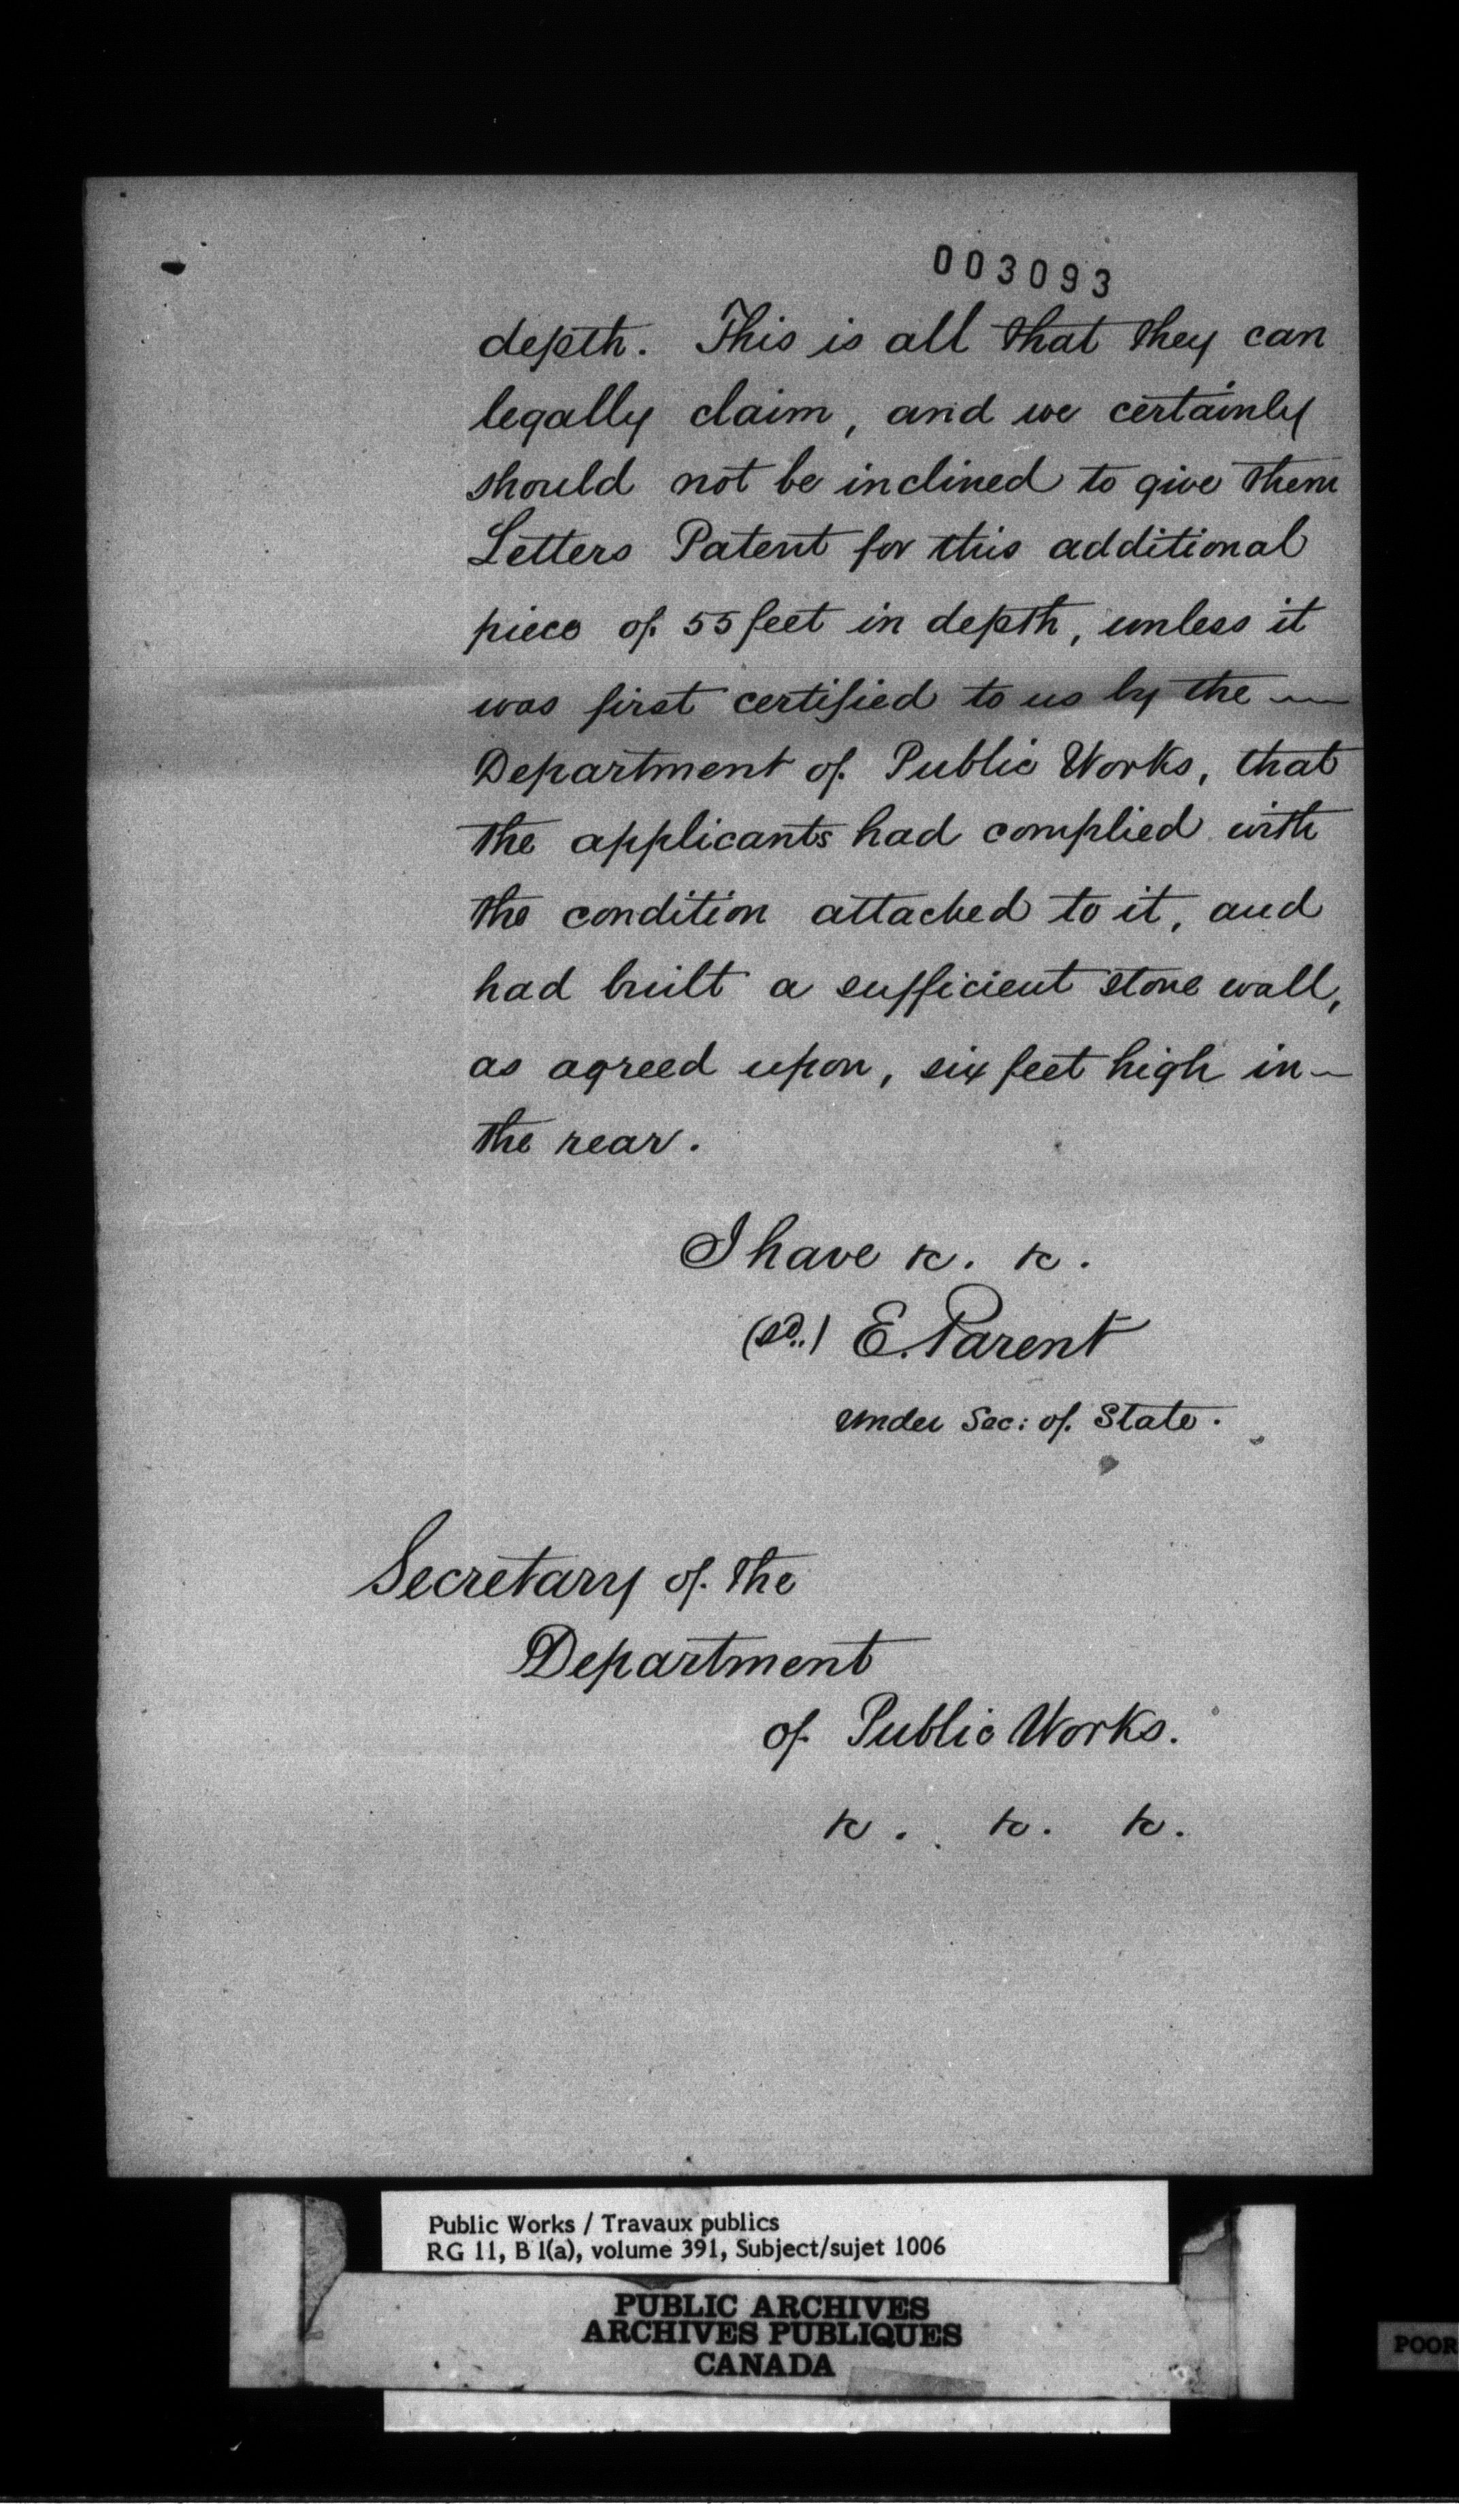 003093
depth. This is all that they can
legally claim, and we certainly
should not be inclined to give them
Letters Patent for this additional
piece of 55 feet in depth, unless it
was first certified to us by the —
Department of Public Works, that
the applicants had complied with
the condition attached to it, and
had built a sufficient stone wall,
as agreed upon, six feet high in —
the rear.
I have &c. &c.
(sd..) E. Parent
Under Sec: of State.
Secretary of the
Department
of Public Works.
&c. &c. &c.
Public Works / Travaux publics
RG 11, B 1(a), volume 391, Subject/sujet 1006
PUBLIC ARCHIVES
ARCHIVES PUBLIQUES
CANADA
POOR